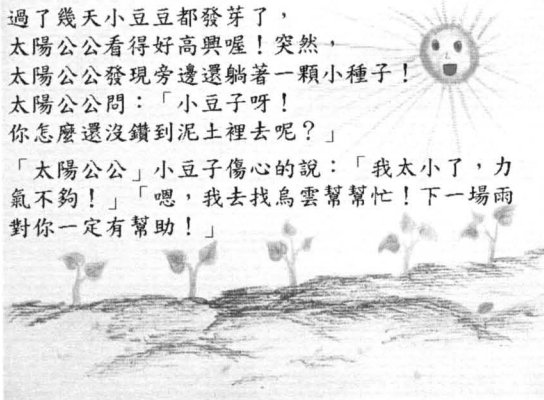 過了幾天小豆豆都發芽了，
太陽公公看得好高興喔！突然，
太陽公公發現旁邊還躺著一顆小種子！
太陽公公問：「小豆子呀！
你怎麼還沒鑽到泥土裡去呢？」
「太陽公公」小豆子傷心的說：「我太小了，力
氣不夠！」「嗯，我去找烏雲幫幫忙！下一場雨
對你一定有幫助！」